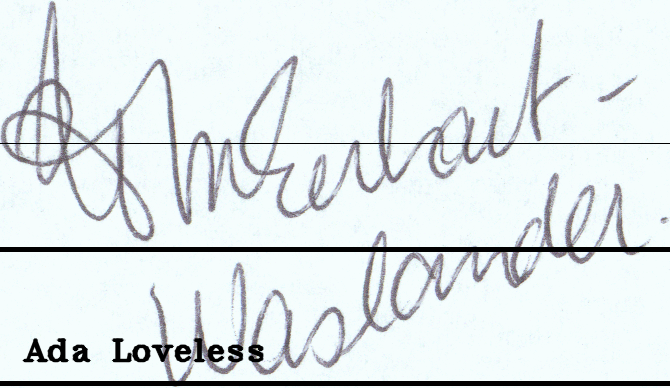 Erbart -
Waslander.
Ada Loveless